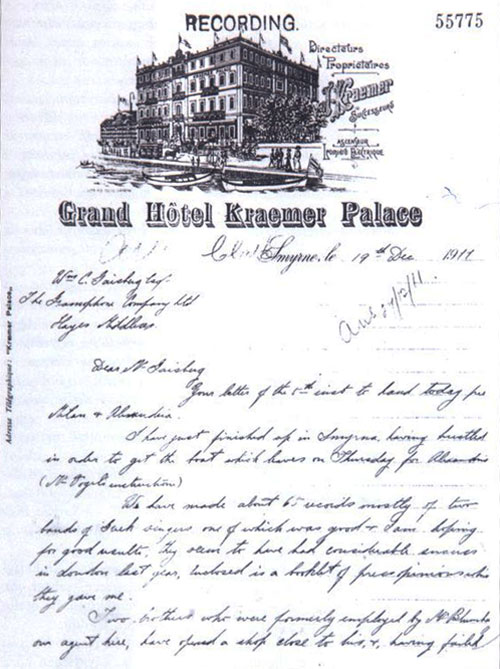 RECORDING.
55775
Directeurs
Propriétaires
J. Kraemer
Successeurs
ASCENSEUR
Grand Hôtel Kraemer Palace
Smyrne, le 19th Dec 1911
Wm C. Gaisberg Esq.
The Gramophone Company Ltd
Hayes Middlesex
Ans 27/12/11.
Adresse Télégraphique: "Kraemer Palace".
Dear Mr Gaisberg
Your letter of the 5th inst to hand today per
Milan & Alexandria
I have just finished up in Smyrna, having hustled
in order to get the boat which leaves on Thursday for Alexandria
(Mr Vogel's instruction)
We have made about 65 records mostly of two
bands of Greek singers one of which was good & I am hoping
for good results. They seem to have had considerable success
in London last year, enclosed is a booklet of press opinions which
they gave me.
Two brothers who were formerly employed by Mr Blumberg
our agent here, have opened a shop close to his, &, having failed